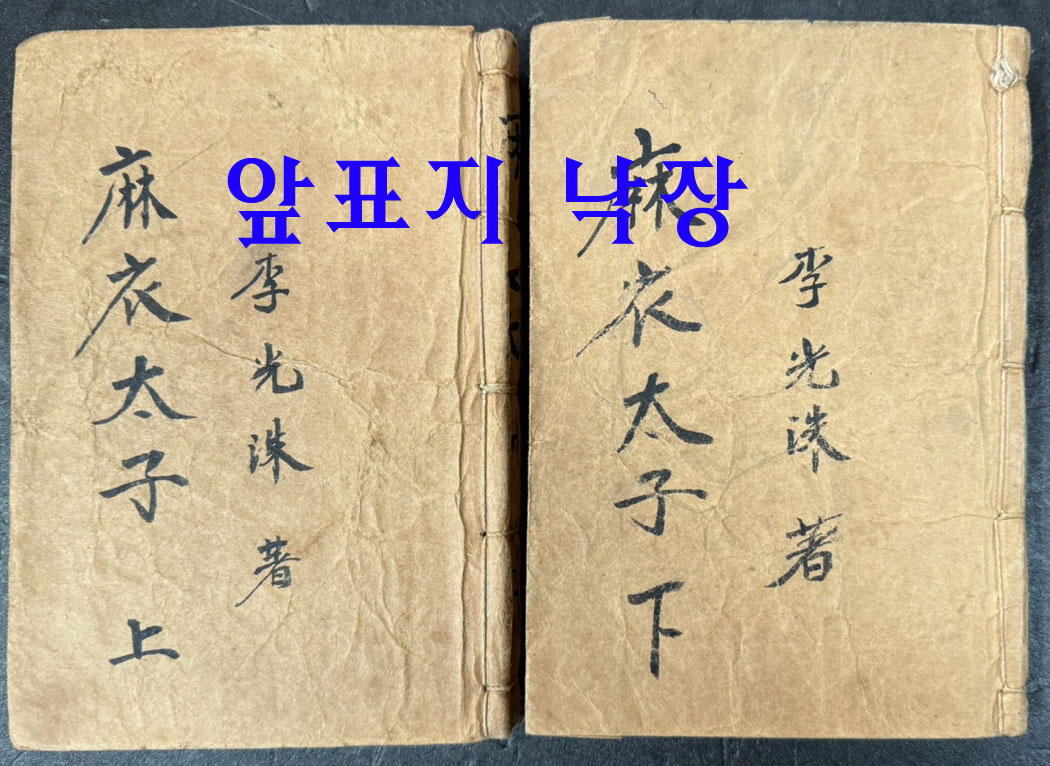 앞표지 낙장
李光洙 著
麻衣太子 上
李光洙 著
麻衣太子 下